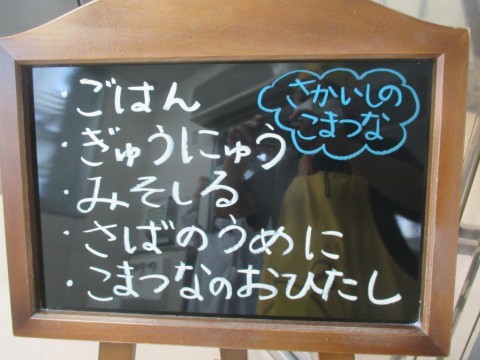 ・ごはん
・ぎゅうにゅう
・みそしる
・さばのうめに
・こまつなのおひたし
さかいしの
こまつな